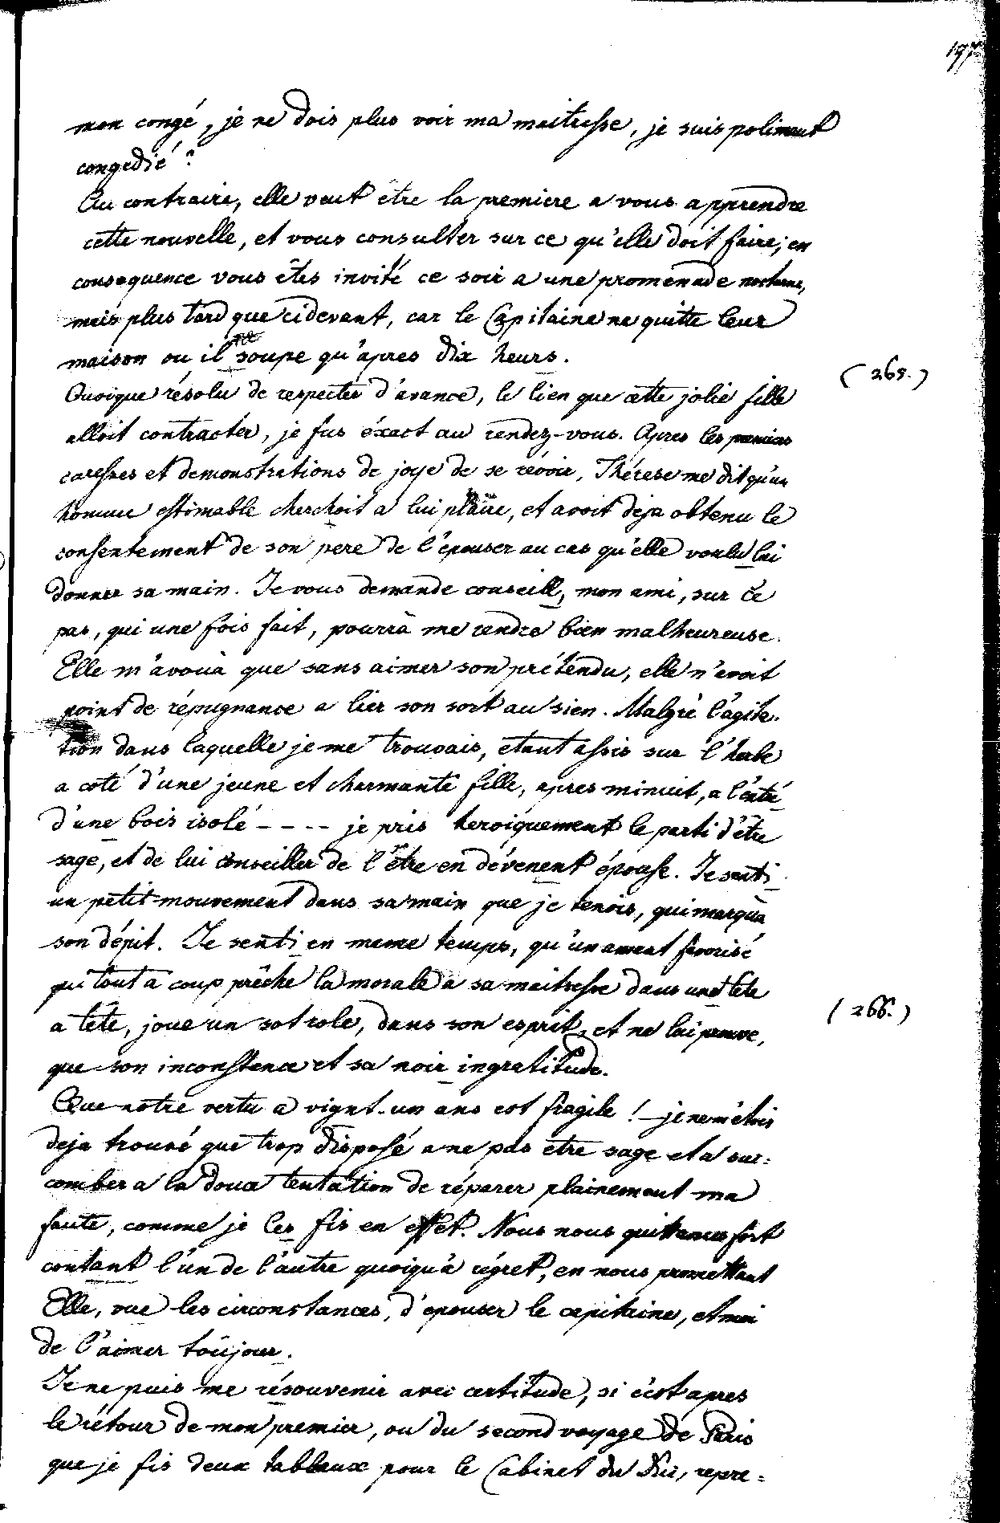 197
mon congé, je ne dois plus voir ma maitresse, je suis poliment
congedié?
Au contraire, elle veut être la premiere a vous apprendre
cette nouvelle, et vous consulter sur ce qu'elle doit faire; en
consequence vous êtes invité ce soir a une promenade nocturne,
mais plus tard que cidevant, car le Capitaine ne quitte leur
maison ou il soupe qu'apres dix heurs.
(265.)
Quoique résolu de respecter d'avance, le lien que cette jolie fille
alloit contracter, je fus éxact au rendez-vous. Apres les premiers
caresses et demonstrations de joye de se révoir, Thérese me dit qu'un
homme estimable cherchoit a lui plaire, et avoit deja obtenu le
consentement de son pere de l'épouser au cas qu'elle voulu lui
donner sa main. Je vous demande conseill, mon ami, sur ce
pas, qui une fois fait, pourrà me rendre bien malheureuse.
Elle m'avouà que sans aimer son prétendu, elle n'avoit
point de répugnance a lier son sort au sien. Malgré l'agita-
tion dans laquelle je me trouvais, etant assis sur l'herbe
a coté d'une jeune et charmante fille, apres minuit, a l'entré
d'une bois isolé - - - - je pris heroiquement le parti d'être
sage, et de lui conseiller de l'être en dévenent épouse. Je senti
un petit mouvement dans sa main que je tenois, qui marquà
son dépit. Je senti en meme temps, qu'un amant favorisé
qui tout a coup prêche la morale a sa maitresse dans un tete
(266.)
a tête, joue un sot role, dans son esprit, et ne lui prouve,
que son inconstence et sa noir ingratitude.
Que notre vertu a vignt-un ans est fragile! je ne m'étois
deja trouvé que trop disposé a ne pas etre sage et a suc=
comber a la douce tentation de réparer plainement ma
faute, comme je les fis en effet. Nous nous quittames fort
contant l'un de l'autre quoiqu'à régret, en nous promettant
Elle, vue les circonstances, d'epouser le capitaine, et moi
de l'aimer toujour.
Je ne puis me résouvenir avec certitude, si c'est apres
le rétour de mon premier, ou du second voyage de Paris
que je fis deux tableaux pour le Cabinet du Roi, repre=